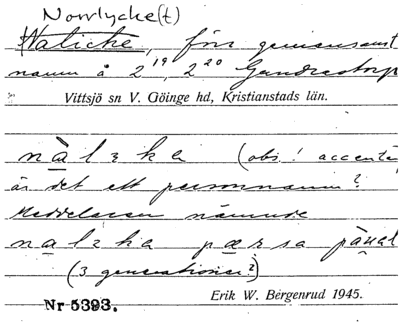 Norrlycke(t)
Nalicke, förr gemensamt
namn å 2¹⁹, 2²⁰ Gundrastorp
Vittsjö sn V. Göinge hd, Kristianstads län.
nàlzka (obs! accenten
är det ett personnamn?
Meddelaren nämnde
nalzka pærsa pàual
(3 generationer?)
Nr 5393. Erik W. Bergenrud 1945.